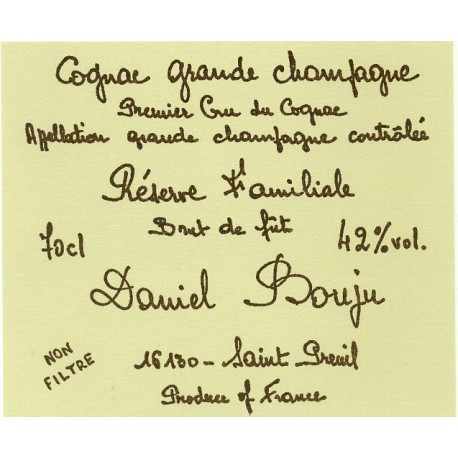 Cognac grande champagne
Premier Cru du Cognac
Appellation grande champagne contrôlée
Réserve Familiale
Brut de fût
70cl
42%vol.
Daniel Bouju
NON
FILTRE
16130 - Saint Preuil
Produce of France